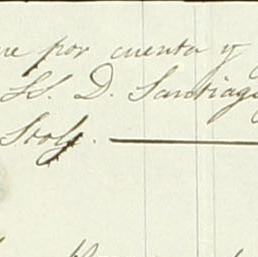 ue por cuenta y
SS. D. Santiago
Stoly.